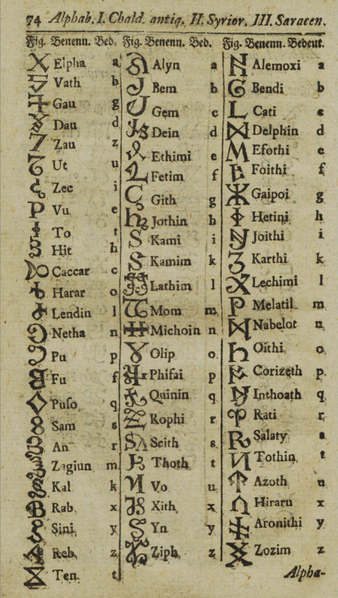 74 Alphab. I. Chald. antiq. II. Syrior. III. Saracen.
Fig. Benenn. Bed.
Elpha a
Vath b
Gau g
Dau d
Zau z
Ut u
Zec i
Vu e
To t
Hit h
Caccar c
Harar o
Lendin l
Netha n
Pu p
Fu f
Puſo q
Sam s
An r
Zagiun m
Kal k
Rab x
Sini y
Reb z
Ten t
Fig. Benenn. Bed.
Alyn a
Bem b
Gem c
Dein d
Ethimi e
Fetim f
Gith g
Jothin h
Kami i
Kamim k
Lathim l
Mom m
Michoin n
Olip o
Phifai p
Quinin q
Rophi r
Scith s
Thoth t
Vo u
Xith x
Yn y
Ziph z
Fig. Benenn. Bedeut.
Alemoxi a
Bendi b
Cati c
Delphin d
Efothi e
Foithi f
Gaipoi g
Hetini h
Joithi i
Karthi k
Lechimi l
Melatil m
Nabelot n
Oithi o
Corizeth p
Inthoath q
Rati r
Salaty s
Tothin t
Azoth u
Hiraru x
Aronithi y
Zozim z
Alpha-